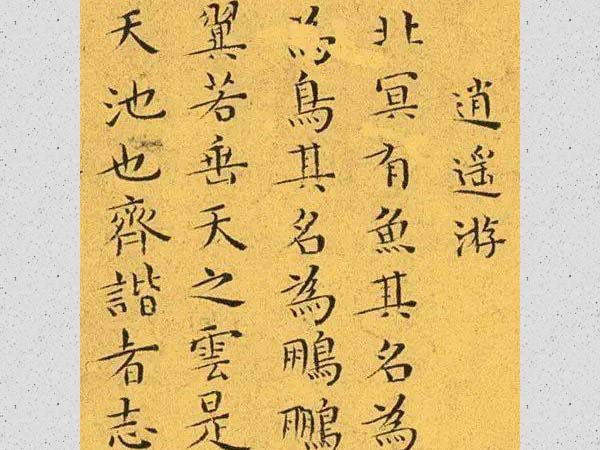 逍遙游
北冥有魚其名為
為鳥其名為鵬鵬
翼若垂天之雲是
天池也齊諧者志